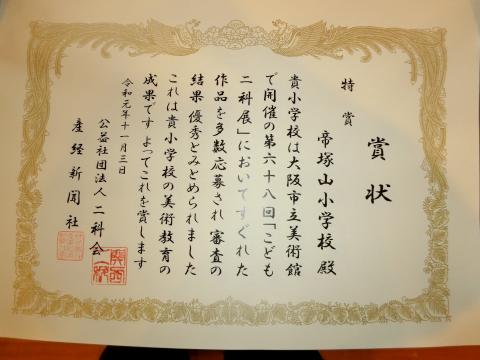 賞状
特賞
帝塚山小学校 殿
貴小学校は大阪市立美術館
で開催の第六十八回「こども
二科展」においてすぐれた
作品を多数応募され 審査の
結果 優秀とみとめられました
これは貴小学校の美術教育の
成果です よってこれを賞します
令和元年十一月三日
公益社団法人 二科会
産経新聞社